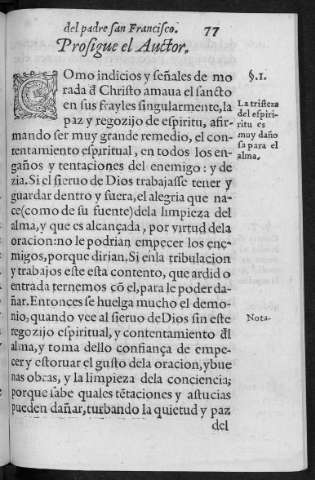 del padre san Francisco. 77
Prosigue el Auctor.
COmo indicios y señales de mo
rada đ Christo amaua el sancto
en sus frayles singularmente, la
paz y regozijo de espiritu, afir-
mando ser muy grande remedio, el con-
tentamiento espiritual, en todos los en-
gaños y tentaciones del enemigo: y de
zia. Si el sieruo de Dios trabajasse tener y
guardar dentro y fuera, el alegria que na-
ce(como de su fuente) dela limpieza del
alma, y que es alcançada, por virtud dela
oracion: no le podrian empecer los ene-
migos, porque dirian, Si enla tribulacion
y trabajos este esta contento, que ardid o
entrada ternemos cõ el, para le poder da-
ñar. Entonces se huelga mucho el demo-
nio, quando vee al sieruo de Dios sin este
regozijo espiritual, y contentamiento đl
alma, y toma dello confiança de empe-
cer y estoruar el gusto dela oracion, y bue
nas obras, y la limpieza dela conciencia;
porque sabe quales tẽtaciones y astucias
pueden dañar, turbando la quietud y paz
del
§. I.
La tristeza
del espiri-
ritu es
muy daño
sa para el
alma.
Nota.